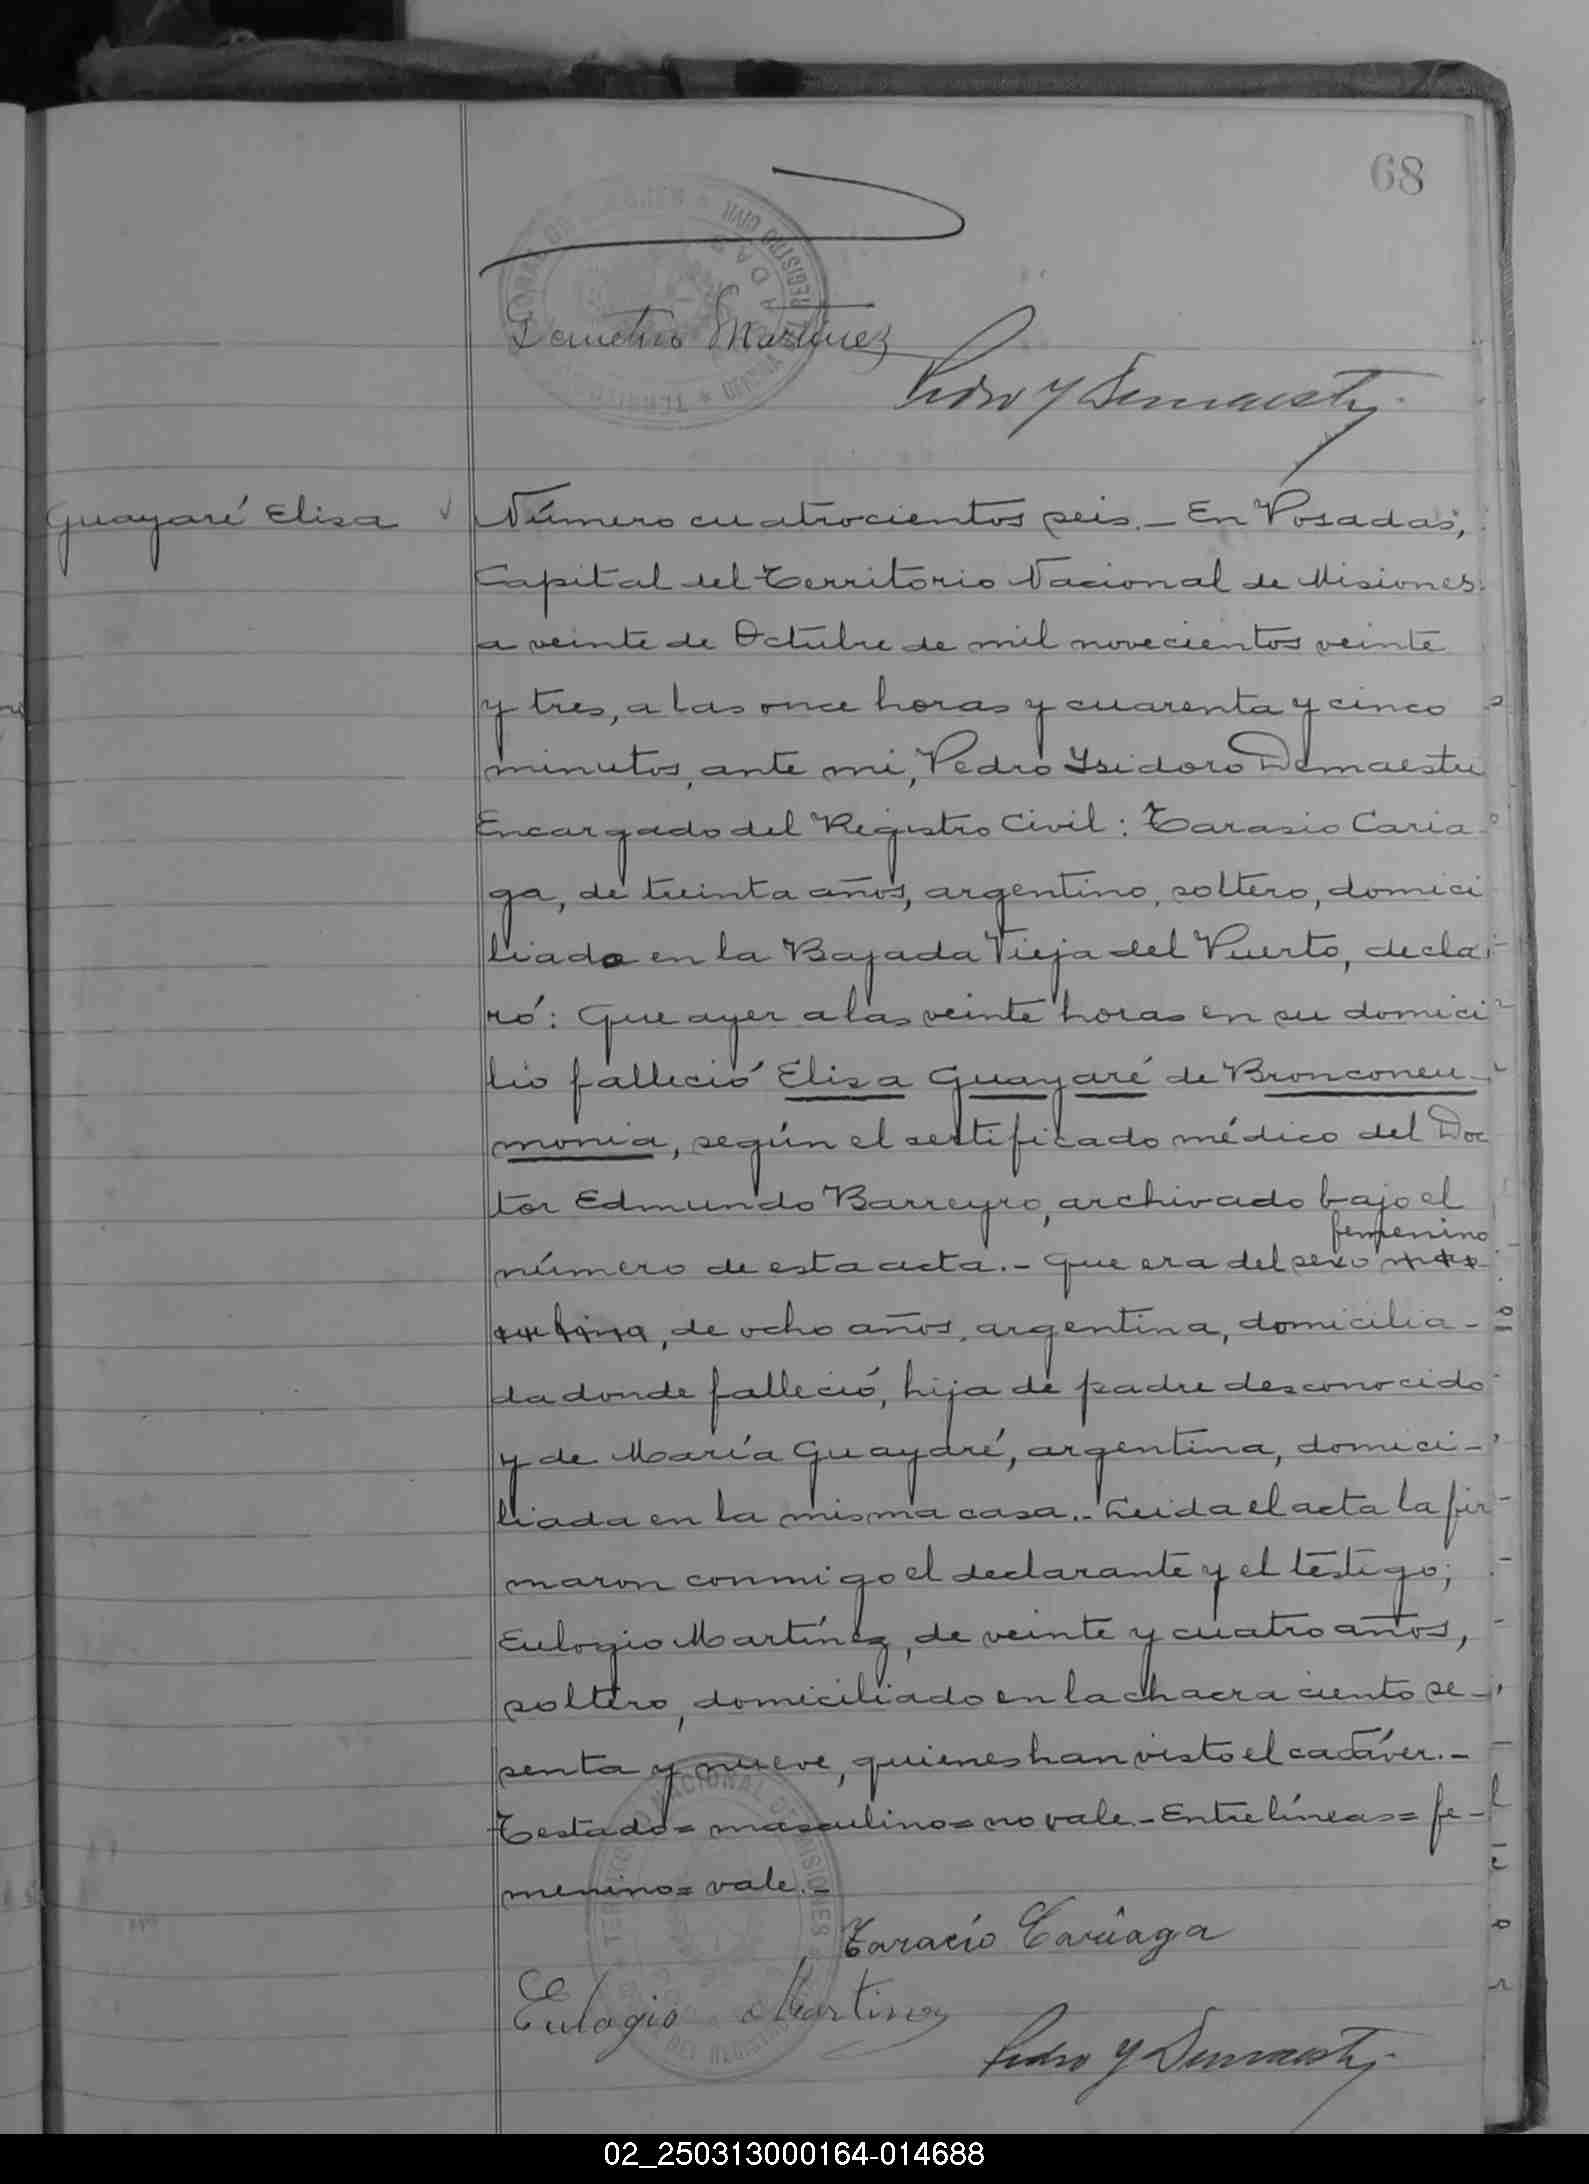 68
Demetrio Martinez
Pedro Y Demaestri
Guayaré Elisa
Número cuatrocientos seis.- En Posadas,
Capital del Territorio Nacional de Misiones
a veinte de Octubre de mil novecientos veinte
y tres, a las once horas y cuarenta y cinco
minutos, ante mi, Pedro Ysidoro Demaestri
Encargado del Registro Civil: Tarasio Caria
ga, de treinta años, argentino, soltero, domici
liado en la Bajada Vieja del Puerto, decla
ró: Que ayer a las veinte horas en su domici
lio falleció Elisa Guayaré de Bronconeu-
monia, según el sertificado médico del Doc
tor Edmundo Barreyro, archivado bajo el
femenino
número de esta acta.- Que era del sexo mas
culina, de ocho años, argentina, domicilia-
da donde falleció, hija de padre desconocido
y de María Guayaré, argentina, domici-
liada en la misma casa.- Leida el acta la fir
maron conmigo el declarante y el testigo;
Eulogio Martínez, de veinte y cuatro años,
soltero, domiciliado en la chacra ciento se-
senta y nueve, quienes han visto el cadáver.-
Testado= masculino= no vale.- Entre líneas= fe-
menino= vale.-
TERRITORIO NACIONAL DE MISIONES
Taracio Cariaga
Eulogio Martinez
Pedro Y Demaestri
02_250313000164-014688